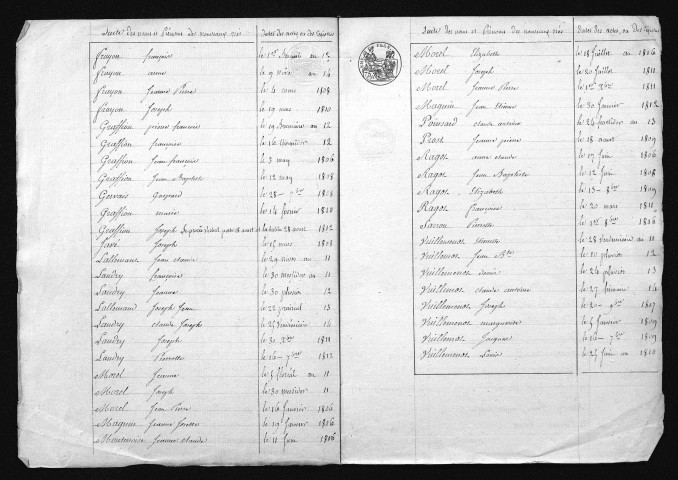 Suite des noms et Prénoms des nouveaux nés dates des actes ou des Registres
Frayon françois le 1er an 12
Frayon anne le 9 an 14
Frayon Jeanne Pierre le 4 1808
Frayon Joseph le 19 mars 1810
Graffion pierre francois le 19 an 12
Graffion françoise le 16 12
Graffion Jean francois le 3 may 1806
Graffion Jean Baptiste le 12 may 1808
Gervais Gaspard le 28 7bre 1808
Graffion marie le 14 février 1810
Graffion Joseph le 28 aout 1812
Joseph le 15 mars 1808
Lallemant Jean claude le 29 nivos an 11
Landry françoise le 30 messidor an 11
Landry Jeanne le 30 pluviose 12
Lallemand Joseph Jean le 22 prairial 13
Landry claude Joseph le 25 14
Landry Joseph le 30 Xbre 1811
Landry Pierrette le 16 7bre 1812
Morel Jeanne le 5 floréal an 11
Morel Joseph le 30 messidor 11
Morel Jean Pierre le 16 février 1806
Maguin Jeanne Josette le 19 janvier 1806
Jeanne claude le 11 Juin 1806
Suite des noms et Prénoms des nouveaux nés dates des actes, ou des Registres
Morel Elizabeth le 18 Juillet 1806
Morel Joseph le 20 Juillet 1811
Morel Jeanne Pierre le 1er Xbre 1811
Maguin Jean Etienne le 30 Janvier 1812
Ponsard claude antoine le 24 13
Prost Jeanne pierre le 18 aout 1809
Ragot anne claude le 17 Juin 1806
Ragot Jean Baptiste le 12 Juin 1808
Ragot Elizabeth le 13 8bre 1809
Ragot Françoise le 20 mars 1811
Pierrette le 1er 8bre 1806
Vuillemenot Etiennette le 28 an 11
Vuillemenot Jean Bte le 10 pluviose 12
Vuillemenot le 24 pluviose 13
Vuillemenot claude antoine le 27 frimaire 14
Vuillemenot Joseph le 20 9bre 1807
Vuillemenot marguerite le 5 Janvier 1809
Vuillemenot Jacques le 16 7bre 1809
Vuillemenot Louis le 25 Juin 1810